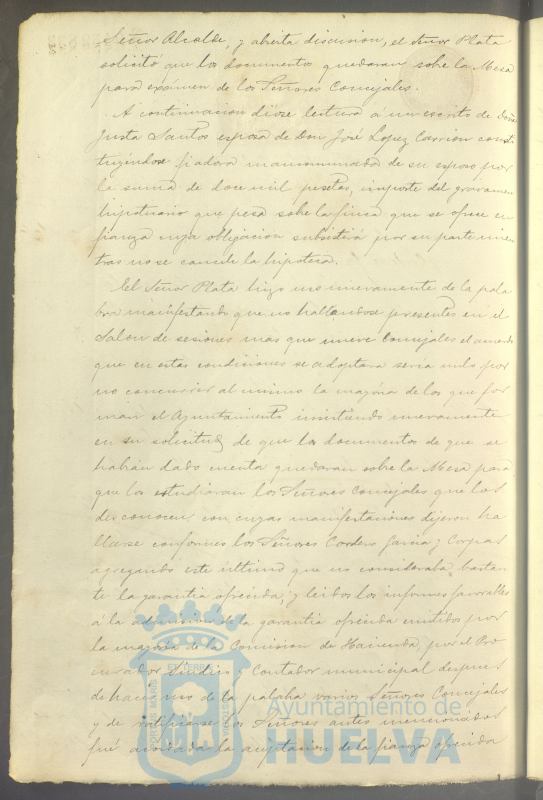 Señor Alcalde, y abierta discusion, el Señor Plata
solicitó que los documentos quedaran sobre la Mesa
para exámen de los Señores Concejales.
A continuacion dióse lectura á un escrito de Doña
Justa Santos esposa de Don José Lopez Carrion consti-
tuyéndose fiadora mancomunada de su esposo por
la suma de doce mil pesetas, importe del gravamen
hipotecario que pesa sobre la finca que se ofrece en
fianza cuya obligacion subsistirá por su parte mien-
tras no se cancele la hipoteca.
El Señor Plata hizo uso nuevamente de la pala
bra manifestando que no hallandose presentes en el
Salon de sesiones mas que nueve Concejales el acuerdo
que en estas condiciones se adoptara seria nulo por
no concurrir al mismo la mayoria de los que for
man el Ayuntamiento insistiendo nuevamente
en su solicitud de que los documentos de que se
habian dado cuenta quedaran sobre la Mesa para
que los estudiaran los Señores Concejales que los
desconocen con cuyas manifestaciones dijeron ha
llarse conformes los Señores Cordero Garcia y Corpas
agregando este último que no consideraba bastan
te la garantia ofrecida; y leidos los informes favorables
á la admision de la garantia ofrecida emitidos por
la mayoria de la Comision de Hacienda, por el Pro
curador Síndico y Contador municipal despues
de hacer uso de la palabra varios Señores Concejales
y de ratificarse los Señores antes mencionados
fué acordada la aceptacion de la fianza ofrecida
Ayuntamiento de
HUELVA